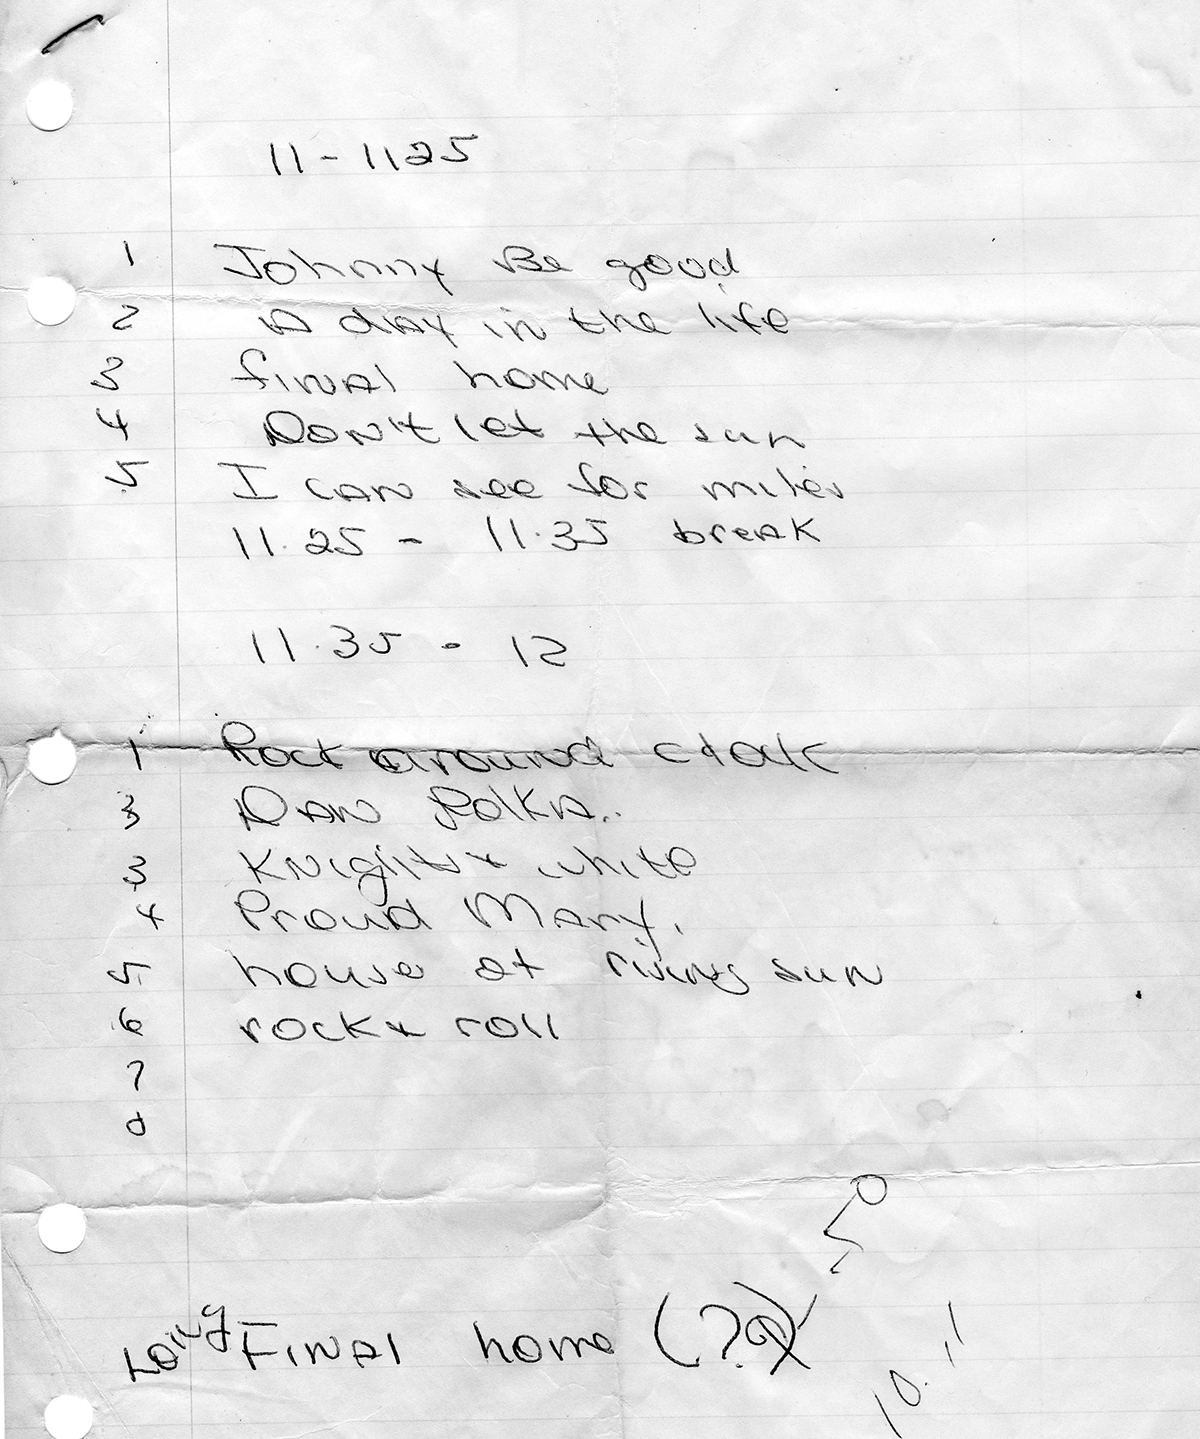 11 - 1125
1 Johnny Be good
2 A day in the life
3 final home
4 Don't let the sun
5 I can see for miles
11.25 - 11.35 break
11.35 - 12
1 Rock around clock
3 Dan Polka..
3 Knights & white
4 Proud Mary.
5 house of rising sun
6 rock & roll
7
8
Final home (?
10.